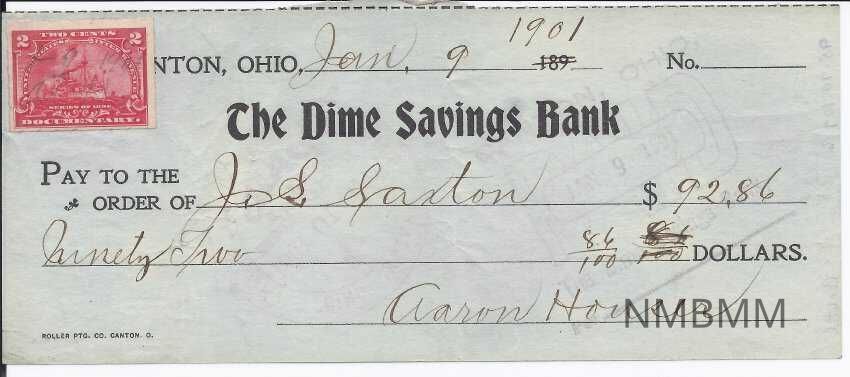 1901
2 TWO CENTS 2
SERIES OF 1898
DOCUMENTARY.
NTON, OHIO, Jan. 9 189 No.
The Dime Savings Bank
PAY TO THE
ORDER OF J. S. Saxton $ 92.86
Ninety Two 86/100 86/100 DOLLARS.
Aaron
NMBMM
ROLLER PTG. CO. CANTON. O.